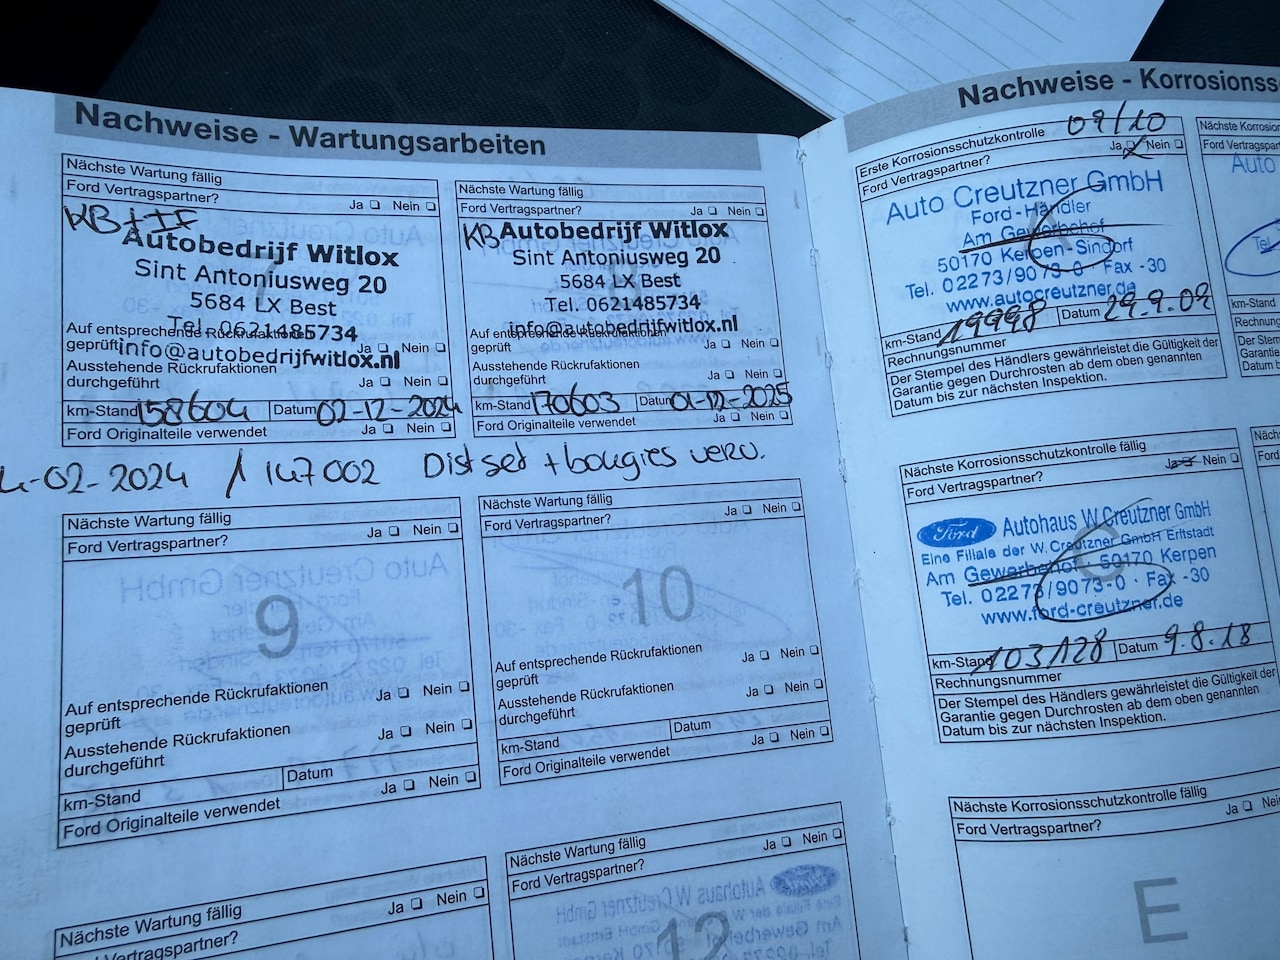 Nachweise - Wartungsarbeiten
Nächste Wartung fällig
Ford Vertragspartner?
Ja ❏ Nein ❏
KB + IF
Autobedrijf Witlox
Sint Antoniusweg 20
5684 LX Best
Tel. 0621485734
info@autobedrijfwitlox.nl
Auf entsprechende Rückrufaktionen
geprüft
Ja ❏ Nein ❏
Ausstehende Rückrufaktionen
durchgeführt
Ja ❏ Nein ❏
km-Stand 158604 Datum 02-12-2024
Ford Originalteile verwendet Ja ❏ Nein ❏
Nächste Wartung fällig
Ford Vertragspartner?
Ja ❏ Nein ❏
KB
Autobedrijf Witlox
Sint Antoniusweg 20
5684 LX Best
Tel. 0621485734
info@autobedrijfwitlox.nl
Auf entsprechende Rückrufaktionen
geprüft
Ja ❏ Nein ❏
Ausstehende Rückrufaktionen
durchgeführt
Ja ❏ Nein ❏
km-Stand 170603 Datum 01-12-2025
Ford Originalteile verwendet Ja ❏ Nein ❏
-02-2024 / 147002 Dist set + bougies verv.
Nächste Wartung fällig
Ford Vertragspartner?
Ja ❏ Nein ❏
9
Auf entsprechende Rückrufaktionen
geprüft
Ja ❏ Nein ❏
Ausstehende Rückrufaktionen
durchgeführt
Ja ❏ Nein ❏
km-Stand Datum
Ford Originalteile verwendet Ja ❏ Nein ❏
Nächste Wartung fällig
Ford Vertragspartner?
Ja ❏ Nein ❏
10
Auf entsprechende Rückrufaktionen
geprüft
Ja ❏ Nein ❏
Ausstehende Rückrufaktionen
durchgeführt
Ja ❏ Nein ❏
km-Stand Datum
Ford Originalteile verwendet Ja ❏ Nein ❏
Nächste Wartung fällig
Ford Vertragspartner?
Ja ❏ Nein ❏
Nächste Wartung fällig
Ford Vertragspartner?
Ja ❏ Nein ❏
12
Nachweise - Korrosionss
Erste Korrosionsschutzkontrolle 09/10
Ford Vertragspartner? Ja ❏ Nein ❏
Auto Creutzner GmbH
Ford-Händler
Am Gewerbehof
50170 Kerpen-Sindorf
Tel. 02273/9073-0 · Fax -30
www.autocreutzner.de
km-Stand 19998 Datum 29.9.09
Rechnungsnummer
Der Stempel des Händlers gewährleistet die Gültigkeit der
Garantie gegen Durchrosten ab dem oben genannten
Datum bis zur nächsten Inspektion.
Nächste Korrosionsschutzkontrolle fällig
Ford Vertragspartner? Ja ❏ Nein ❏
C
Ford Autohaus W. Creutzner GmbH
Eine Filiale der W. Creutzner GmbH Erftstadt
Am Gewerbehof · 50170 Kerpen
Tel. 02273/9073-0 · Fax -30
www.ford-creutzner.de
km-Stand 103128 Datum 9.8.18
Rechnungsnummer
Der Stempel des Händlers gewährleistet die Gültigkeit der
Garantie gegen Durchrosten ab dem oben genannten
Datum bis zur nächsten Inspektion.
Nächste Korrosionsschutzkontrolle fällig
Ford Vertragspartner?
Ja ❏ Nei
E
Nächste Korrosion
Ford Vertragspar
Auto
Tel.
km-Stand
Rechnung
Der Stem
Garantie
Datum b